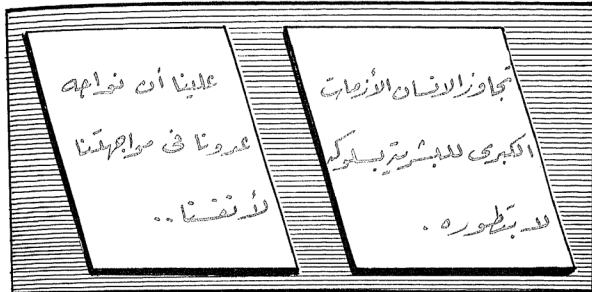 تجاوز الانسان الأزمات
الكبرى للبشرية بسلوكه
لا بتطوره .
علينا أن نواجه
عدونا في مواجهتنا
لأنفسنا ..